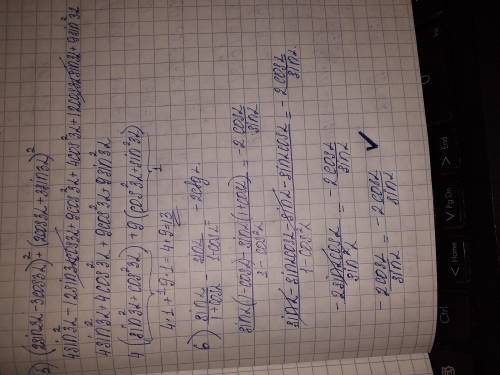 5) (2sin3α-3cos3α)²+(2cos3α+3sin3α)²
4sin²3α-12sin3αcos3α+9cos²3α+4cos²3α+12cos3αsin3α+9sin²3α
4sin²3α+4cos²3α+9cos²3α+9sin²3α
4(sin²3α+cos²3α)+9(cos²3α+sin²3α)
1
4·1+9·1=4+9=13
6) sinα/1+cosα - sinα/1-cosα = -2ctgα
sinα(1-cosα)-sinα(1+cosα)/1-cos²α = -2cosα/sinα
sinα-sinαcosα-sinα-sinαcosα/1-cos²α = -2cosα/sinα
-2sinαcosα/sin²α = -2cosα/sinα
-2cosα/sinα = -2cosα/sinα
Ctrl
< Home
∨ Pg Dn
> End